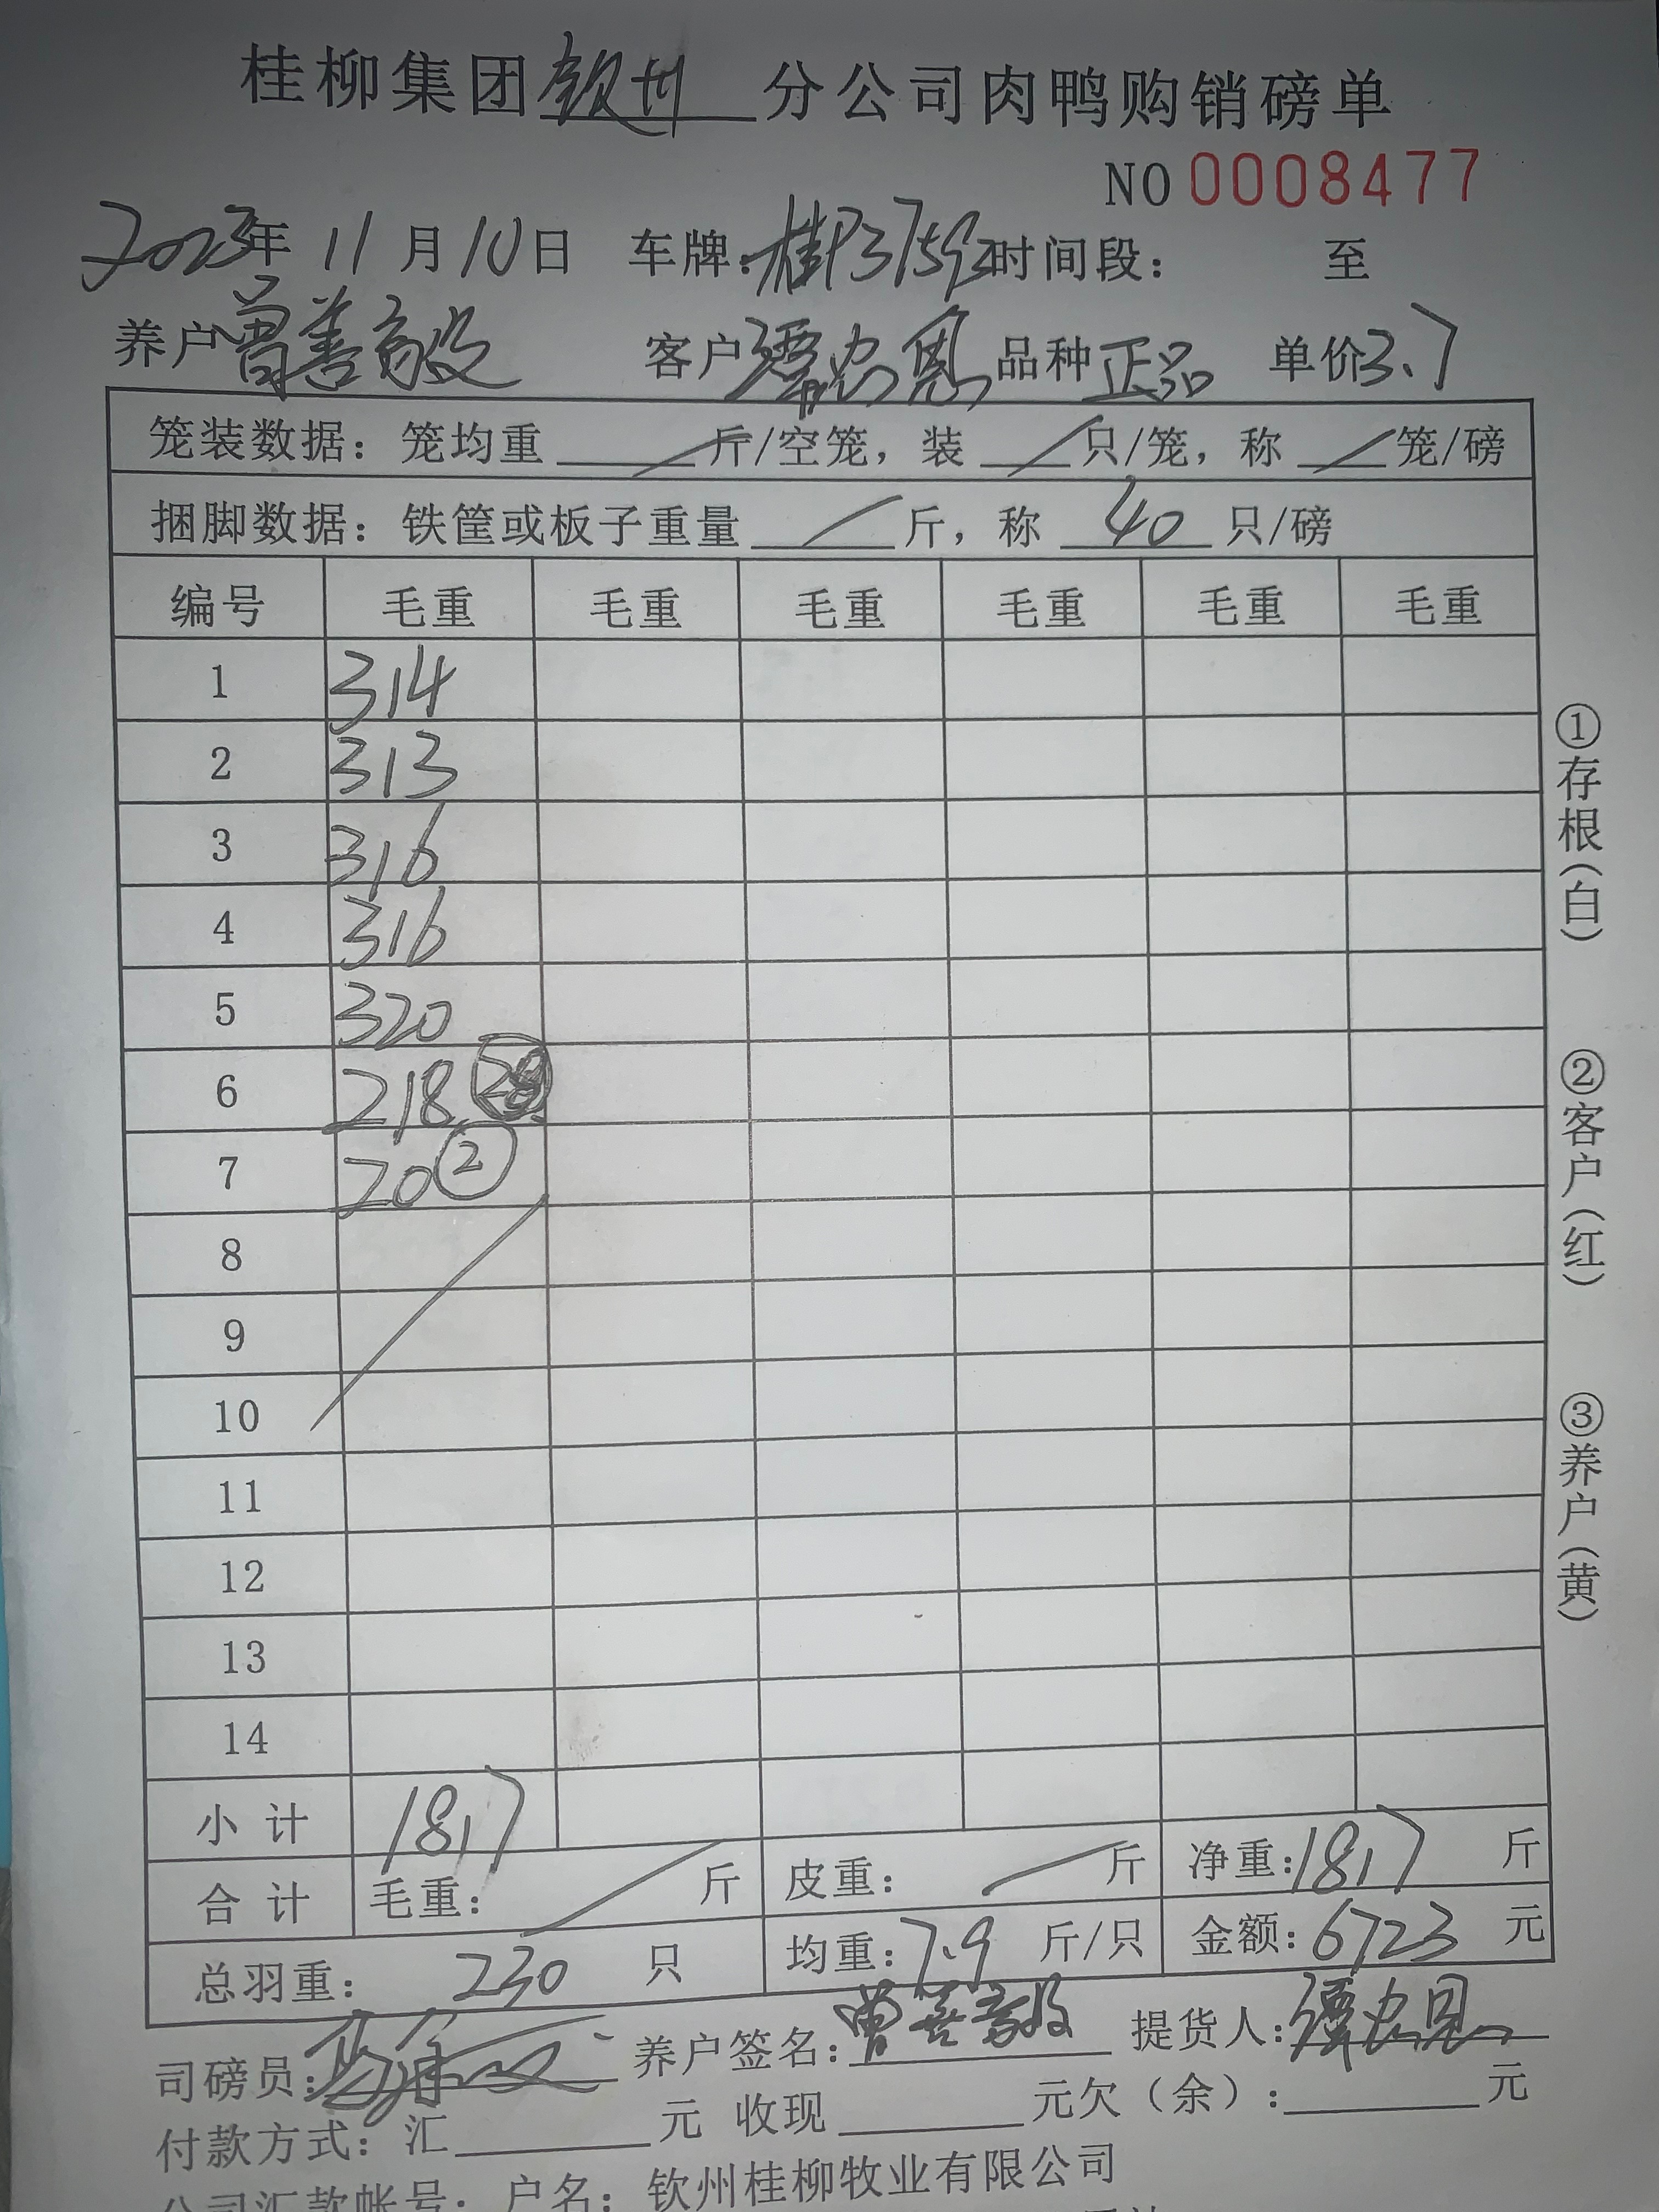 桂柳集团钦州分公司肉鸭购销磅单
NO 0008477
2023年 11月10日 车牌:桂P37592 时间段: 至
养户曾善敏 客户谭忠恩 品种正品 单价3.7
笼装数据: 笼均重 / 斤/空笼, 装 / 只/笼, 称 / 笼/磅
捆脚数据: 铁筐或板子重量 / 斤, 称 40 只/磅
编号 毛重 毛重 毛重 毛重 毛重 毛重
1 314
2 313
3 316
4 316
5 320
6 218 28
7 20 ②
8
9
10
11
12
13
14
小计 1817
合计 毛重: / 斤 皮重: / 斤 净重:1817 斤
总羽重: 230 只 均重:7.9 斤/只 金额:6723 元
司磅员: 养户签名:曾善敏 提货人:谭忠恩
付款方式: 汇 元 收现 元欠(余): 元
公司汇款帐号: 户名: 钦州桂柳牧业有限公司
①存根(白) ②客户(红) ③养户(黄)